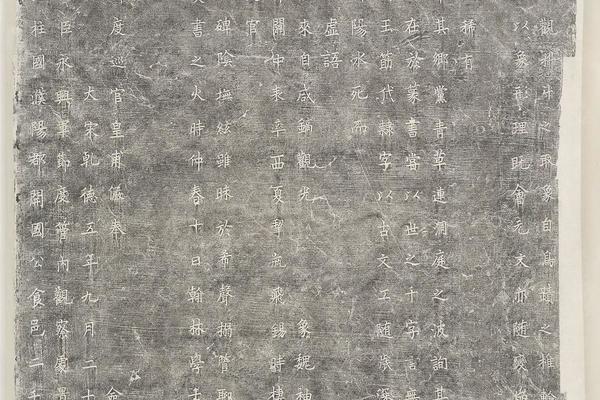 觀科斗之取象自鳥蹟之推輪
以象形理既會元文亦随變
稀有
其鄉黨青草連洞庭之波詢其
在於篆書嘗以世之千字言無
玉筯代隸字以古文工随
陽冰死而
虛語
來自咸鎬觀光 象魏神
關中來 西夏 飛錫時棲
官
碑陰撫絃雖昧於希聲搦管聊
書之火時仲春十日翰林學士
度巡官皇甫儼奉 命
大宋乾德五年九月二十
臣永興軍節度管內觀察處置
柱國濮陽郡開國公食邑二千